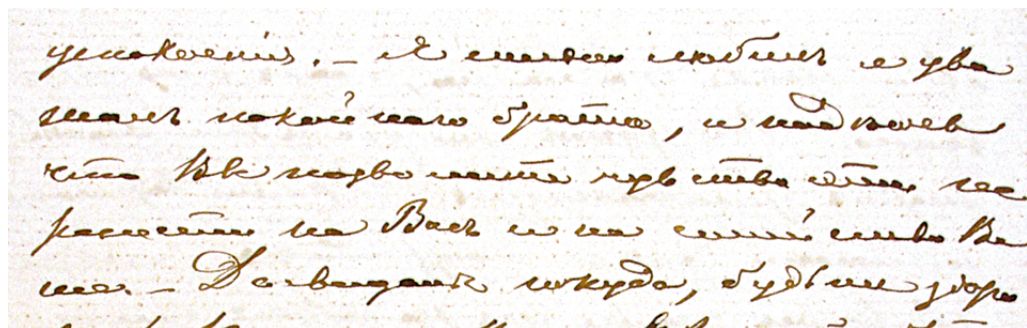 успокоенiи. – Я любилъ и ува
жалъ покойнаго брата, и надѣюсь
что Вы позволите чувства эти пе
ренести на Васъ и на
ше. – Досвиданья покуда, будьте здоро